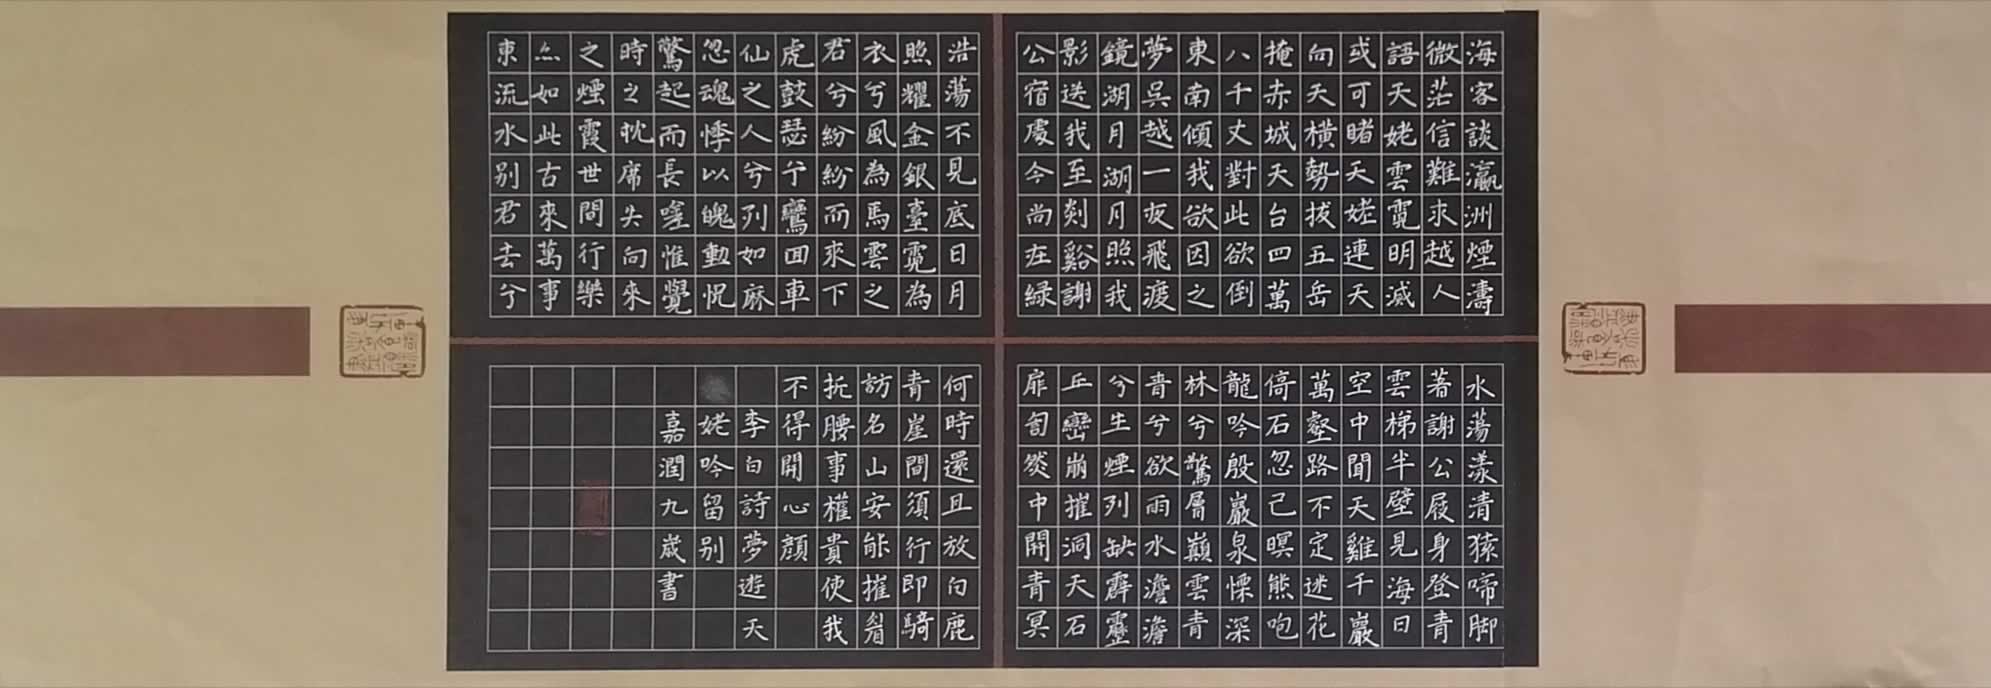 海客談瀛洲煙濤
微茫信難求越人
語天姥雲霓明滅
或可睹天姥連天
向天橫勢拔五岳
掩赤城天台四萬
八千丈對此欲倒
東南傾我欲因之
夢吳越一夜飛渡
鏡湖月湖月照我
影送我至剡谿謝
公宿處今尚在緑
水蕩漾清猿啼脚
著謝公屐身登青
雲梯半壁見海日
空中聞天雞千巖
萬壑路不定迷花
倚石忽己暝熊咆
龍吟殷巖泉慄深
林兮驚層巔雲青
青兮欲雨水澹澹
兮生煙列缺霹靂
丘巒崩摧洞天石
扉訇然中開青冥
浩蕩不見底日月
照耀金銀臺霓為
衣兮風為馬雲之
君兮紛紛而來下
虎鼓瑟兮鸞回車
仙之人兮列如麻
忽魂悸以魄動怳
驚起而長嗟惟覺
時之枕席失向來
之煙霞世間行樂
亦如此古來萬事
東流水別君去兮
何時還且放白鹿
青崖間須行即騎
訪名山安能摧眉
折腰事權貴使我
不得開心顏
李白詩夢遊天
姥吟留別
嘉潤九歲書